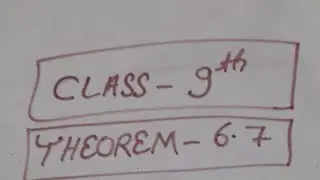 CLASS - 9th
THEOREM - 6.7